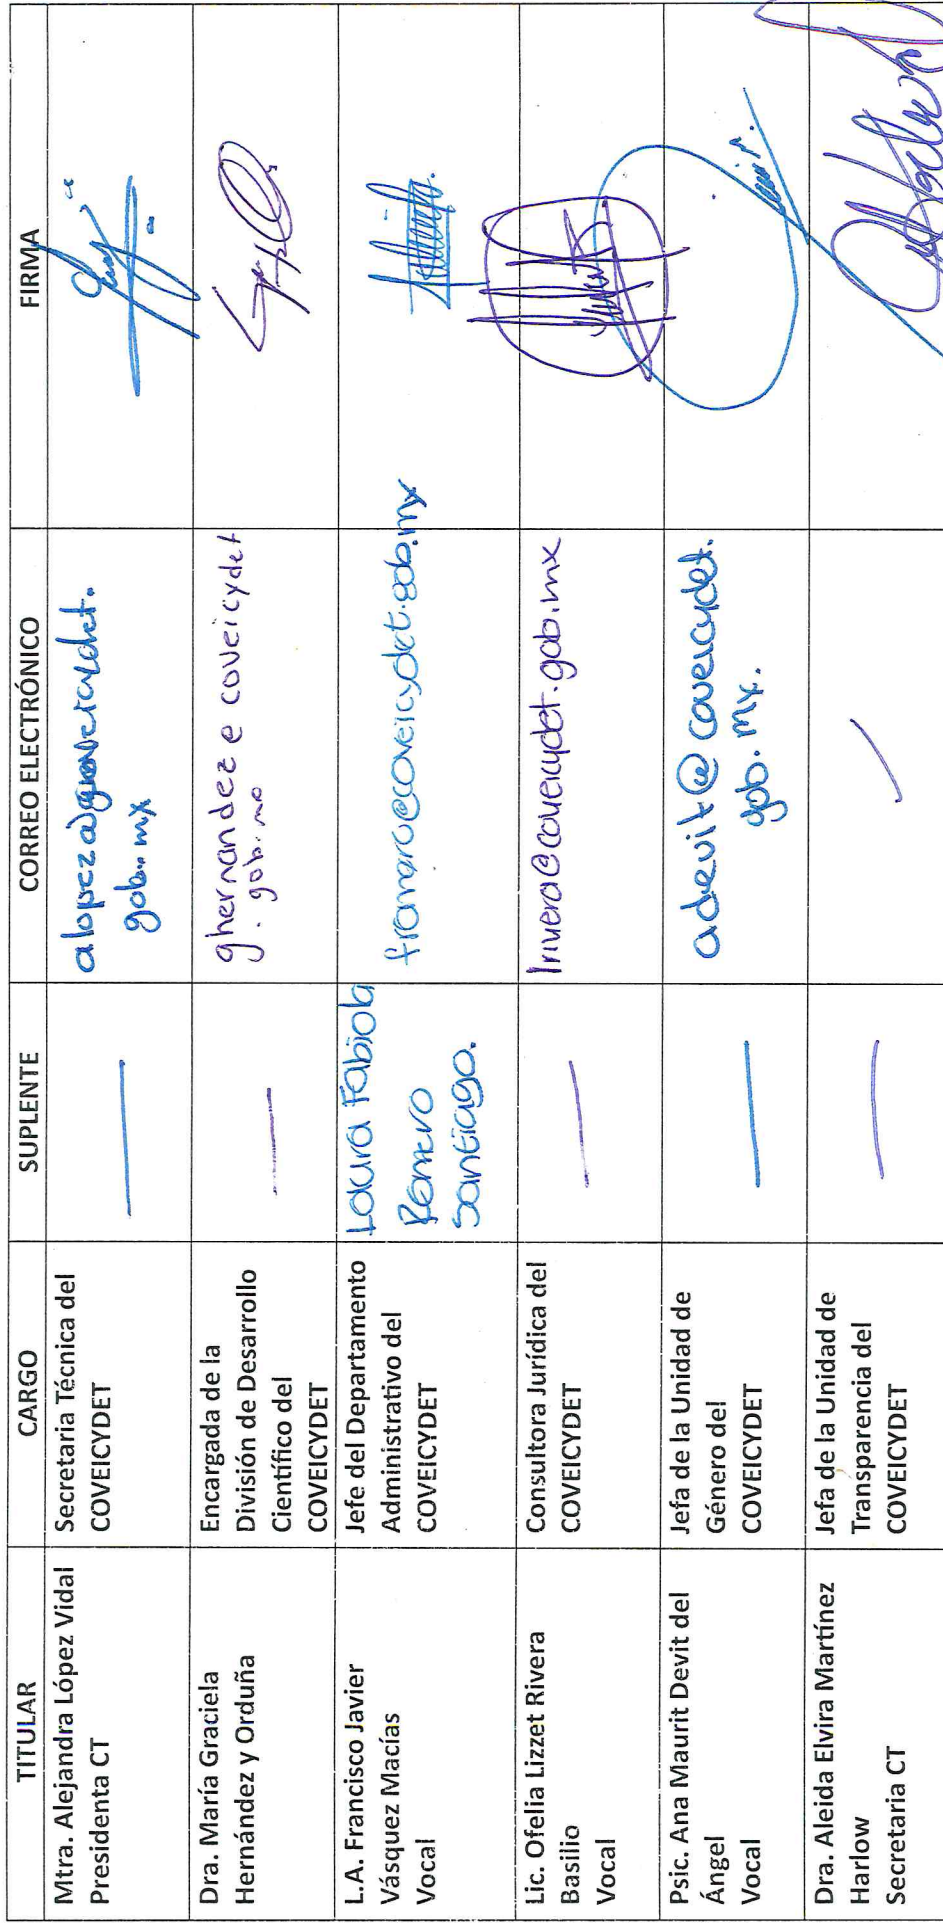 TITULAR CARGO SUPLENTE CORREO ELECTRÓNICO FIRMA
Mtra. Alejandra López Vidal
Presidenta CT
Secretaria Técnica del
COVEICYDET
gob.mx
Dra. María Graciela
Hernández y Orduña
Encargada de la
División de Desarrollo
Científico del
COVEICYDET
ghernandez e coveicydet
. gob.
L.A. Francisco Javier
Vásquez Macías
Vocal
Jefe del Departamento
Administrativo del
COVEICYDET
Laura Fabiola
Romero
Santiago.
fromero@coveicydet.gob.mx
Lic. Ofelia Lizzet Rivera
Basilio
Vocal
Consultora Jurídica del
COVEICYDET
lrivera@coveicydet.gob.mx
Psic. Ana Maurit Devit del
Ángel
Vocal
Jefa de la Unidad de
Género del
COVEICYDET
adevit@coveicydet.
gob.mx.
Dra. Aleida Elvira Martínez
Harlow
Secretaria CT
Jefa de la Unidad de
Transparencia del
COVEICYDET